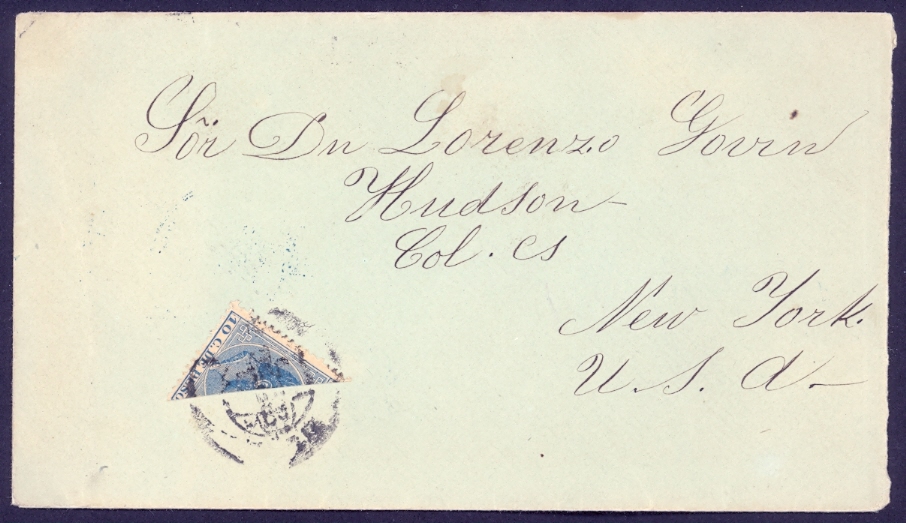 Sõr Dn Lorenzo Govin
Hudson
Col. cs
New York.
U. S. A
10 C. DE